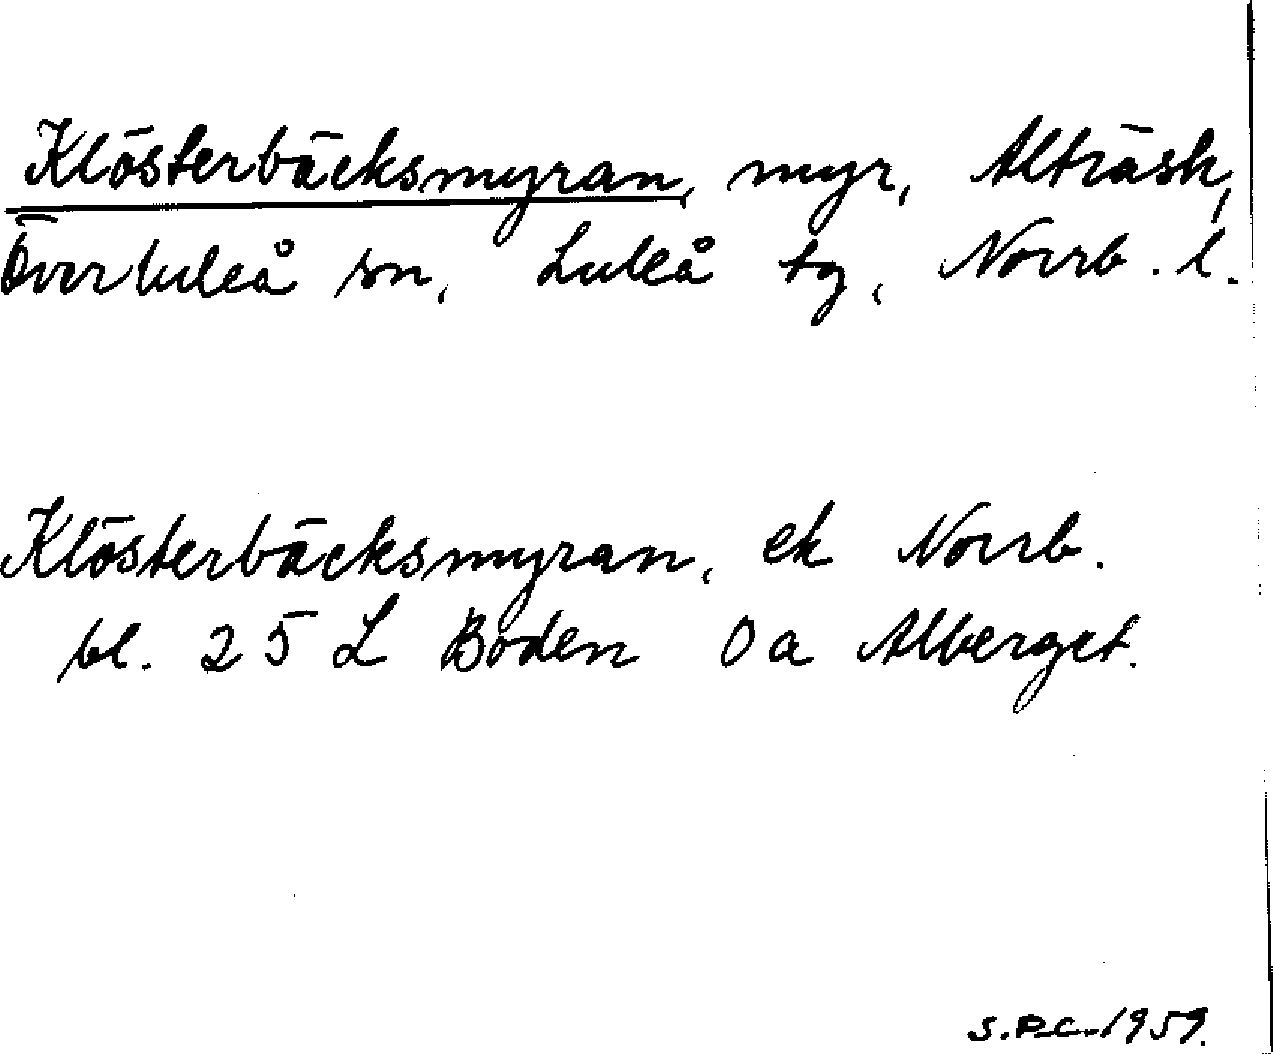 Klösterbäcksmyran, myr, Alträsk,
Överluleå sn, Luleå tg, Norrb. l.
Klösterbäcksmyran, ek Norrb.
bl. 25 L Boden 0a Alberget.
S.P.C. 1959.